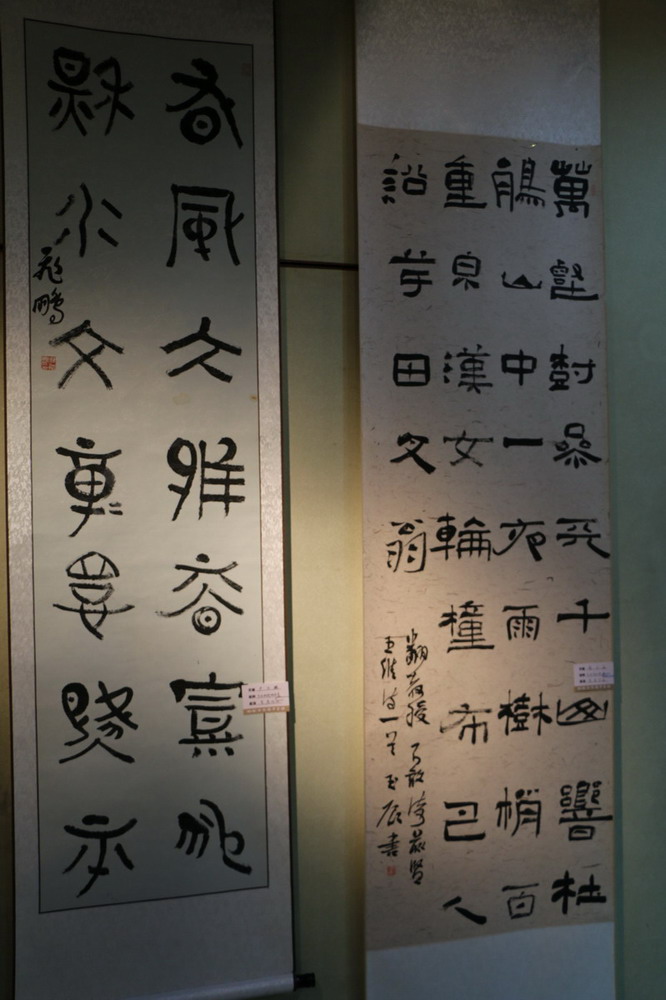 春風大雅容
秋水文章
鵬
萬壑樹參天千山響杜
鵑山中一夜雨樹梢百
重泉漢女輪橦布巴人
訟芋田文翁
翻教授不敢倚先賢
王維詩一首 玉辰書